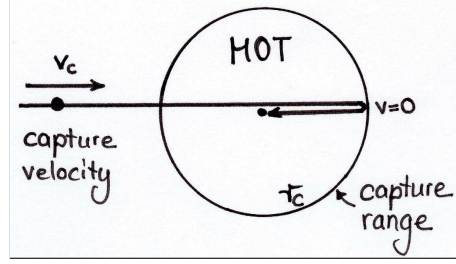 MOT
vc
v=0
capture
velocity
rc
capture
range